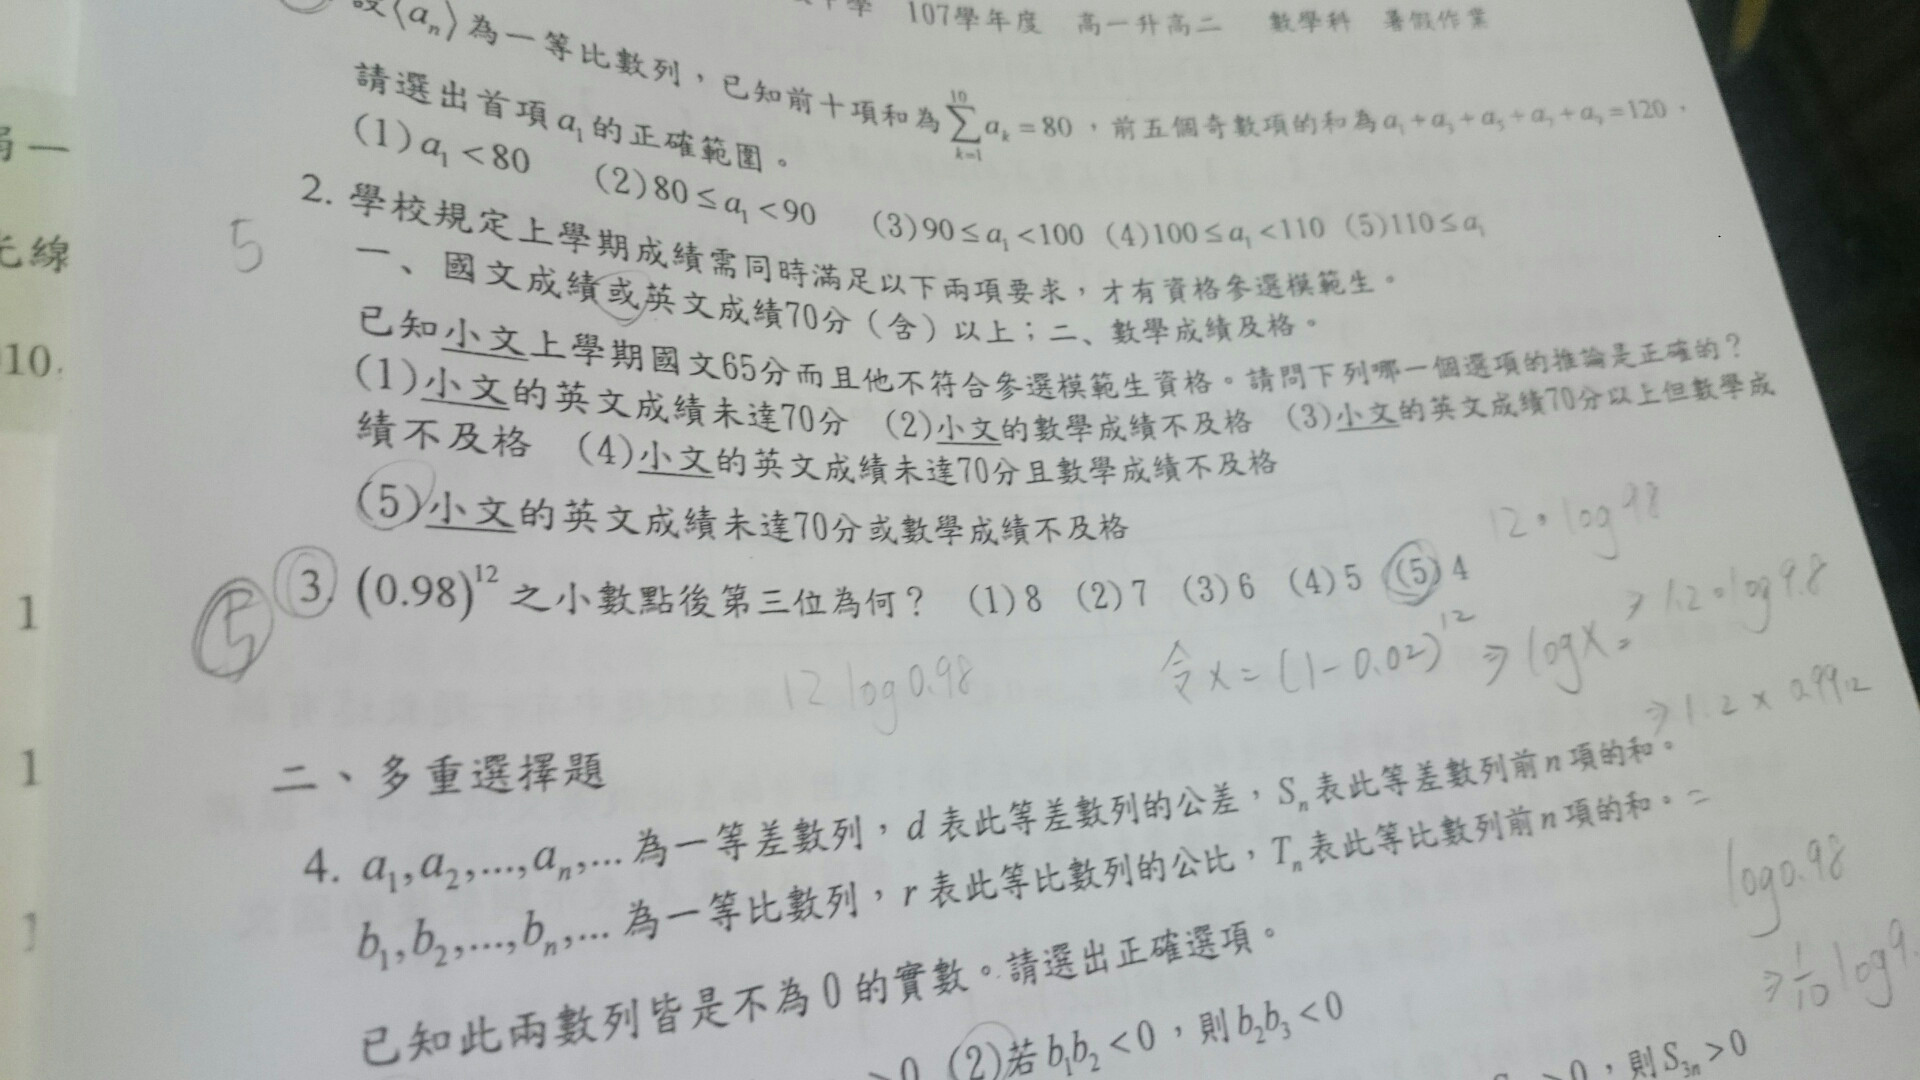 107學年度 高一升高二 數學科 暑假作業
設⟨aₙ⟩為一等比數列，已知前十項和為 ∑_{k=1}^{10} aₖ = 80，前五個奇數項的和為 a₁+a₃+a₅+a₇+a₉=120，
請選出首項a₁的正確範圍。
(1) a₁<80 (2) 80≤a₁<90 (3) 90≤a₁<100 (4) 100≤a₁<110 (5) 110≤a₁
5
2. 學校規定上學期成績需同時滿足以下兩項要求，才有資格參選模範生。
一、國文成績或英文成績70分（含）以上；二、數學成績及格。
已知小文上學期國文65分而且他不符合參選模範生資格。請問下列哪一個選項的推論是正確的？
(1)小文的英文成績未達70分 (2)小文的數學成績不及格 (3)小文的英文成績70分以上但數學成
績不及格 (4)小文的英文成績未達70分且數學成績不及格
(5)小文的英文成績未達70分或數學成績不及格
12·log98
5
3. (0.98)¹² 之小數點後第三位為何？ (1) 8 (2) 7 (3) 6 (4) 5 (5) 4
⇒1.2·log9.8
12 log0.98
令x=(1-0.02)¹² ⇒ logx=
⇒1.2×0.9912
二、多重選擇題
4. a₁,a₂,...,aₙ,... 為一等差數列，d 表此等差數列的公差，Sₙ表此等差數列前n項的和。
b₁,b₂,...,bₙ,... 為一等比數列，r 表此等比數列的公比，Tₙ表此等比數列前n項的和。
log0.98
已知此兩數列皆是不為0的實數。請選出正確選項。
⇒1/10 log9.
>0 (2)若b₁b₂<0，則b₂b₃<0
>0，則S₃ₙ>0
10.
1
1
1
光線